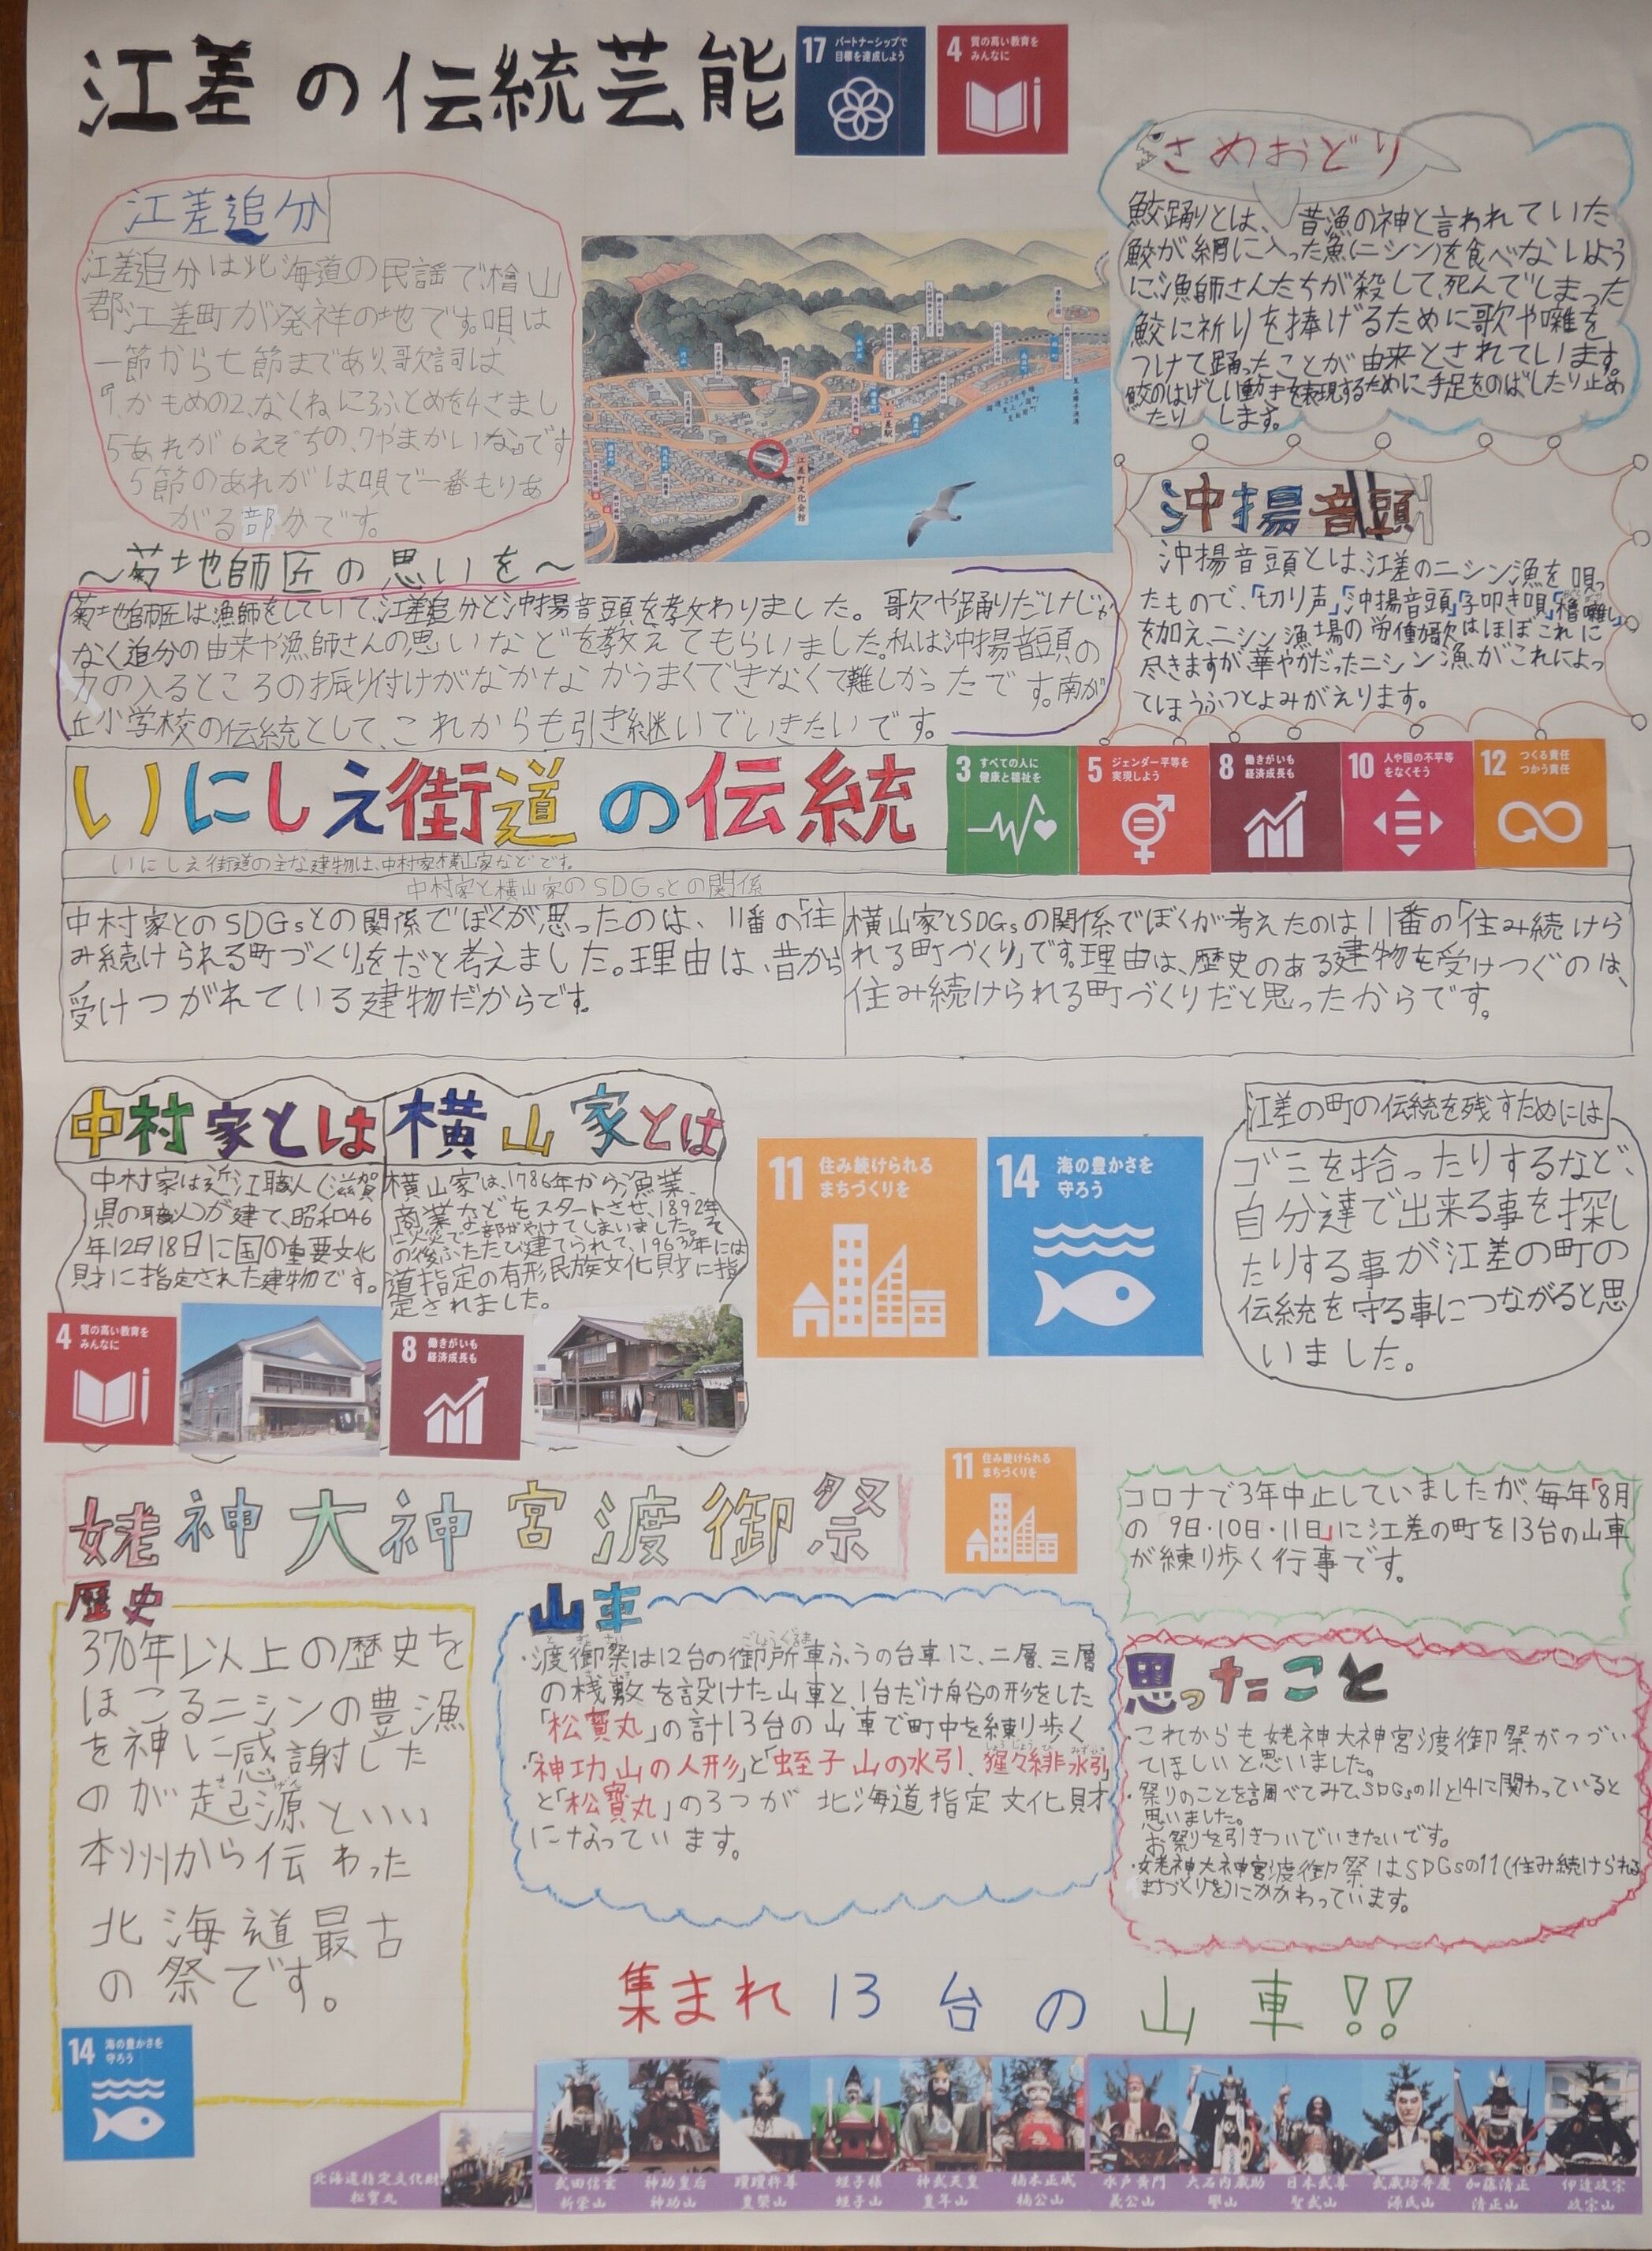 江差の伝統芸能
17 パートナーシップで
目標を達成しよう
4 質の高い教育を
みんなに
江差追分
江差追分は北海道の民謡で檜山
郡江差町が発祥の地です。唄は
一節から七節まであり、歌詞は
『1かもめの2、なくねに3ふとめを4さまし
5あれが6えぞちの、7やまかいな』です
5節のあれがは唄で一番もりあ
がる部分です。
さめおどり
鮫踊りとは、昔漁の神と言われていた
鮫が網に入った魚(ニシン)を食べないよう
に漁師さんたちが殺して、死んでしまった
鮫に祈りを捧げるために歌や囃を
つけて踊ったことが由来とされています。
鮫のはげしい動きを表現するために手足をのばしたり止め
たりします。
江差駅
江差町文化会館
沖揚音頭
沖揚音頭とは、江差のニシン漁を唄っ
たもので、「切り声」「沖揚音頭」「子叩き唄」「櫓囃し」
を加え、ニシン漁場の労働歌はほぼこれに
尽きますが、華やかだったニシン漁がこれによっ
てほうふつとよみがえります。
～菊地師匠の思いを～
菊地師匠は漁師をしていて、江差追分と沖揚音頭を教わりました。歌や踊りだけじゃ
なく追分の由来や漁師さんの思いなどを教えてもらいました。私は沖揚音頭の
力の入るところの振り付けがなかなかうまくできなくて難しかったです。南が
丘小学校の伝統として、これからも引き継いでいきたいです。
いにしえ街道の伝統
3 すべての人に
健康と福祉を
5 ジェンダー平等を
実現しよう
8 働きがいも
経済成長も
10 人や国の不平等
をなくそう
12 つくる責任
つかう責任
いにしえ街道の主な建物は、中村家横山家などです。
中村家と横山家のSDGsとの関係
中村家とのSDGsとの関係でぼくが思ったのは、11番の「住
み続けられる町づくり」をだと考えました。理由は、昔から
受けつがれている建物だからです。
横山家とSDGsの関係でぼくが考えたのは11番の「住み続けら
れる町づくり」です。理由は、歴史のある建物を受けつぐのは、
住み続けられる町づくりだと思ったからです。
中村家とは
中村家は近江職人(滋賀
県の職人)が建て、昭和46
年12月18日に国の重要文化
財に指定された建物です。
横山家とは
横山家は、1786年から漁業、
商業などをスタートさせ、1892年
に火災で一部がやけてしまいました。そ
の後ふたたび建てられて、1963年には
道指定の有形民族文化財に指
定されました。
4 質の高い教育を
みんなに
8 働きがいも
経済成長も
11 住み続けられる
まちづくりを
14 海の豊かさを
守ろう
江差の町の伝統を残すためには
ゴミを拾ったりするなど、
自分達で出来る事を探し
たりする事が江差の町の
伝統を守る事につながると思
いました。
姥神大神宮渡御祭
11 住み続けられる
まちづくりを
コロナで3年中止していましたが、毎年「8月
の9日・10日・11日」に江差の町を13台の山車
が練り歩く行事です。
歴史
370年以上の歴史を
ほこるニシンの豊漁
を神に感謝した
のが起源といい
本州から伝わった
北海道最古
の祭です。
14 海の豊かさを
守ろう
山車
・渡御祭は12台の御所車ふうの台車に、二層、三層
の桟敷を設けた山車と、1台だけ舟谷の形をした
「松寶丸」の計13台の山車で町中を練り歩く
・「神功山の人形」と「蛭子山の水引、猩々緋水引」
と「松寶丸」の3つが北海道指定文化財
になっています。
思ったこと
・これからも姥神大神宮渡御祭がつづい
てほしいと思いました。
・祭りのことを調べてみて、SDGsの11と14に関わっていると
思いました。
お祭りを引きついでいきたいです。
・姥神大神宮渡御祭はSDGsの11(住み続けられる
まちづくりを)にかかわっています。
集まれ13台の山車!!
北海道指定文化財
松寶丸
武田信玄
新栄山
神功皇后
神功山
瓊瓊杵尊
豊栄山
蛭子様
蛭子山
神武天皇
豊年山
楠木正成
楠公山
水戸黄門
義公山
大石内蔵助
譽山
日本武尊
聖武山
武蔵坊弁慶
源氏山
加藤清正
清正山
伊達政宗
政宗山